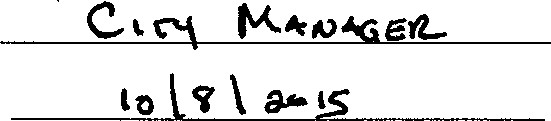 City Manager
10/8/2015